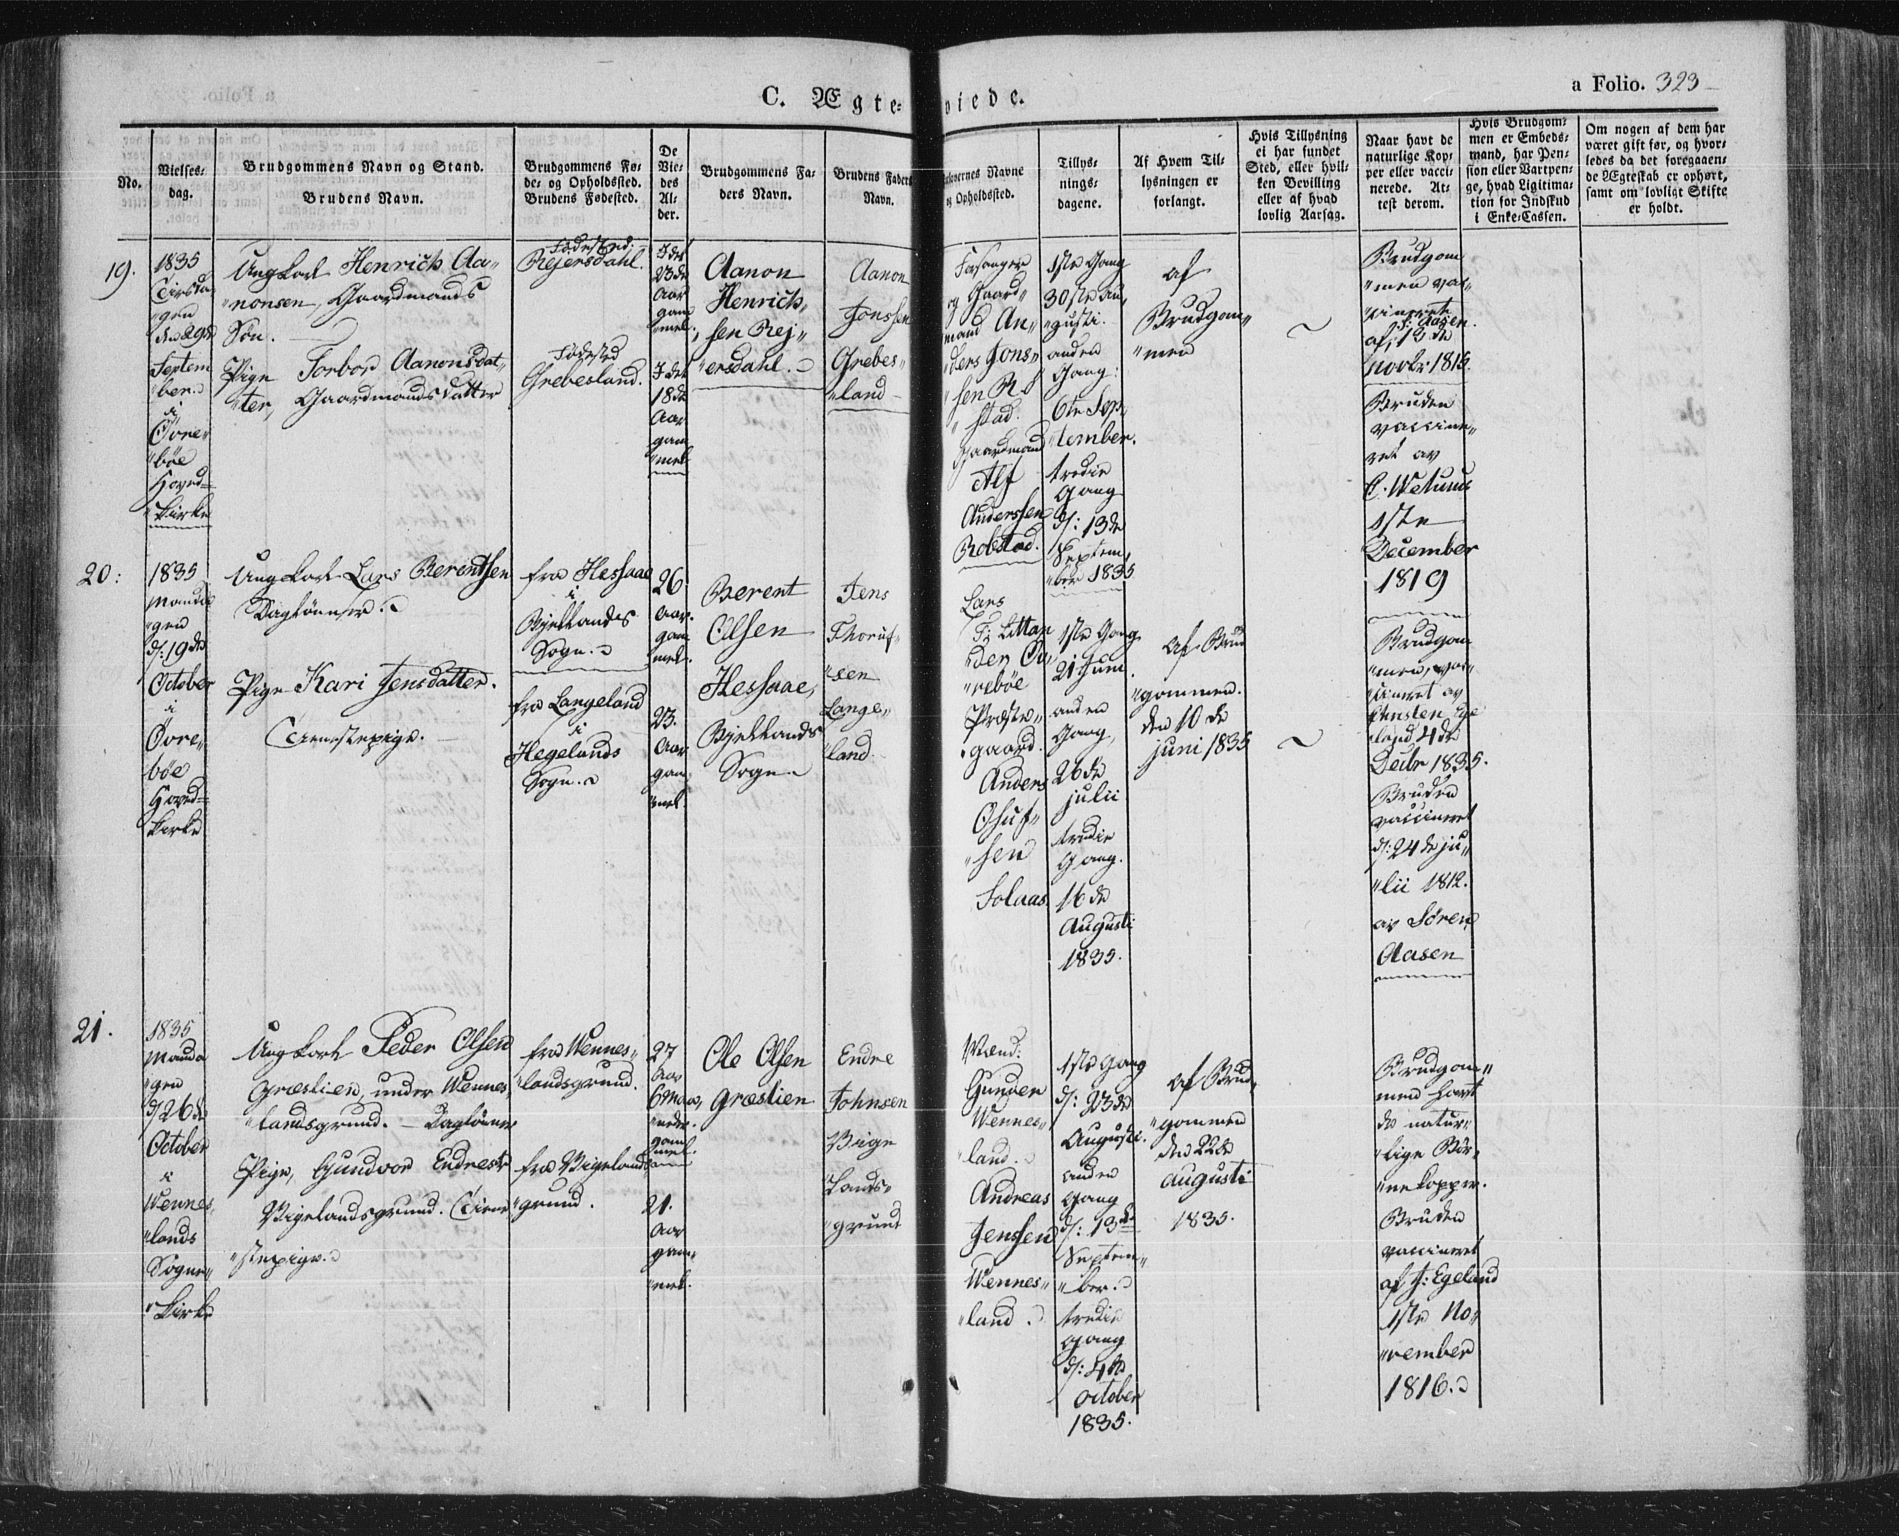 C. Ægte-
viede.
a Folio. 323
No.
Vielses-
dag.
Brudgommens Navn og Stand.
Brudens Navn.
Brudgommens Fø-
de- og Opholdssted.
Brudens Fødested.
De
Vie-
des
Al-
der.
Brudgommens Fa-
ders Navn.
Brudens Faders
Navn.
Forlovernes Navne
og Opholdssted.
Tillys-
nings-
dagene.
Af Hvem Til-
lysningen er
forlangt.
Hvis Tillysning
ei har fundet
Sted, eller hvil-
ken Bevilling
eller af hvad
lovlig Aarsag.
Naar havt de
naturlige Kop-
per eller vacci-
nerede. At-
test derom.
Hvis Brudgom-
men er Embeds-
mand, har Pen-
sion eller Vartpen-
ge, hvad Ligitima-
tion for Indskud
i Enke-Cassen.
Om nogen af dem har
været gift før, og hvor-
ledes da det foregaaen-
de Ægteskab er ophørt,
samt om lovligt Skifte
er holdt.
19.
1835
Tirsda-
"gen
den 29de
Septem
"ber.
i
Øvre-
"bøe
Hoved=
"kirke
Ungkarl Henrich Aa-
"nonsen, Gaardmands
Søn.
Pige Torbor Aanonsdat-
"ter, Gaardmandsdatter
Fødested:
Rejersdahl.
Fødested
Grebesland.
I det
23de
Aar
gam
"mel
I det
18de
Aar
gam
"mel
Aanon
Henrich-
sen Rej-
"ersdahl.
Aanon
Jonssen
Grebes-
"land
Forsanger
og Gaard-
mand An-
ders Jons-
"sen Rob
"stad.
Gaardmand
Alf
Anderssen
Robstad.
1ste Gang
30te Au-
"gusti.
anden
Gang:
6te Sep-
"tember.
tredie
Gang
d: 13de
Septem-
"ber 1835
af
Brudgom-
"men
~
Brudgom
"men vac-
cineret
af S: Aasen.
12de
Novbr 1815.
Bruden
vaccine-
ret av
C: Wetuus
1ste
December
1819
20:
1835
Manda
"gen
d: 19de
October
i
Øvre-
bøe
Hoved=
kirke
Ungkarl Lars Berentsen
Dagløner.
Pige Kari Jensdatter.
Tienestepige.
fra Hessaae
i
Bjellands
Sogn.
fra Langeland
i
Hegelands
Sogn.
26
Aar
gam
mel.
23.
Aar
gam
"mel.
Berent
Olsen
Hessaae,
Bjellands
Sogn
Jens
Thoruf-
"sen
Lange-
"land.
Lars
Littan
den Øv-
"rebøe
Præste-
"gaard.
Anders
Osuf-
"sen
Solaas.
1ste Gang
21 Juni
anden
Gang,
26de
julii
tredie
Gang.
16de
Augusti
1835.
af Brud
"gommen.
den 10de
juni 1835
~
Brudgom
"men, vac-
"cineret av
Christen Ege
"land 4de
Decbr 1835.
Bruden
vaccineret
d: 24de ju-
"lii 1812.
av Søren
Aasen
21.
1835
Manda
"gen
d/26de
October
i
Wennes-
"lands
Sogne-
"kirke
Ungkarl Peder Olsen
Græslien, under Wennes-
"landsgrund. – Dagløner
Pige, Gundvor Endrestr
Vigelandsgrund. Tiene
"stepige.
fra Wennes-
"landsgrund.
fra Vigelands
"grund.
27
Aar
6 Maa-
"neder
gam
mel.
21.
Aar
gam-
"mel.
Ole Olsen
Græslien
Endre
Johnsen
Vige
"lands-
"grund
Gunder
Wennes-
"land.
Andreas
Jenssen
Wennes-
"land.
1ste Gang
d: 23de
Augusti.
anden
Gang
d: 13de
Septem-
"ber.
tredie
Gang
d: 4de
October
1835.
af Brud-
"gommen
den 22de
augusti
1835.
Brudgom-
men havt
de natur-
"lige Bør-
"nekopper.
Bruden
vaccineret
af T: Egeland
1ste No-
"vember
1816.